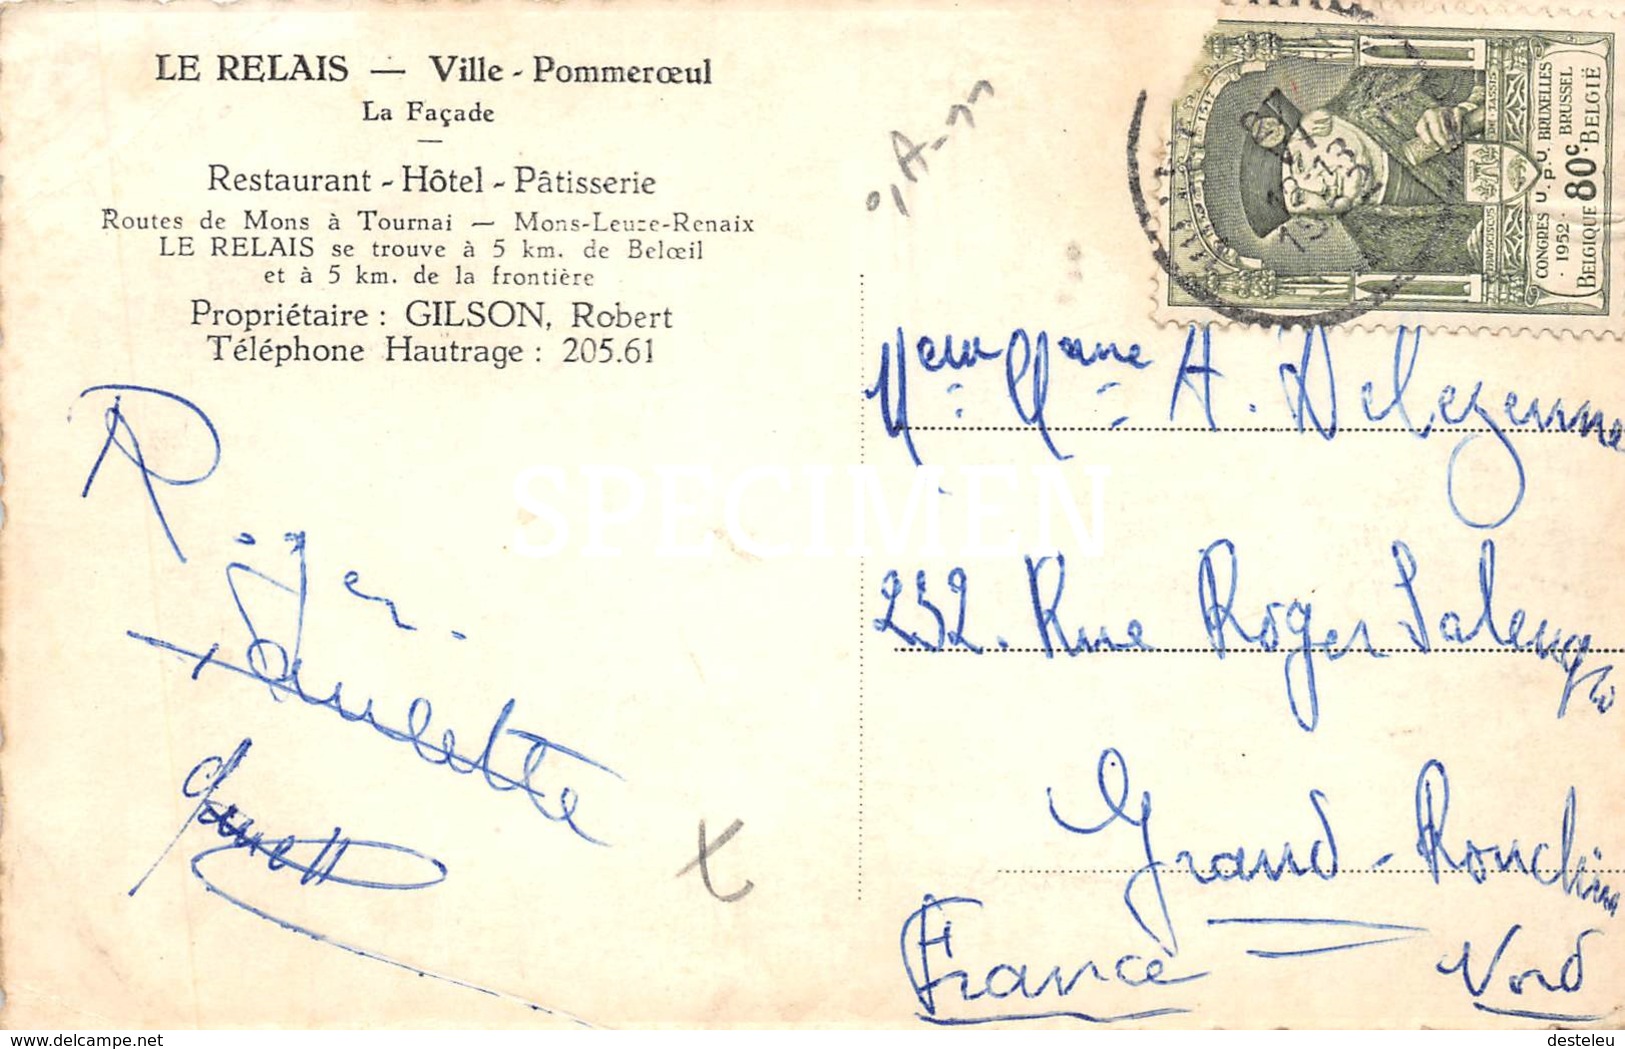 LE RELAIS — Ville - Pommerœul
La Façade
Restaurant - Hôtel - Pâtisserie
Routes de Mons à Tournai — Mons-Leuze-Renaix
LE RELAIS se trouve à 5 km. de Belœil
et à 5 km. de la frontière
Propriétaire : GILSON, Robert
Téléphone Hautrage : 205.61
Roger.
CONGRES U.P.U. BRUXELLES
1952 BRUSSEL
BELGIQUE 80c BELGIË
FRANCISCUS
A. Delezenne
232. Rue Roger Salengro
Grand-Ronchin
France Nord
SPECIMEN
delcampe.net
desteleu